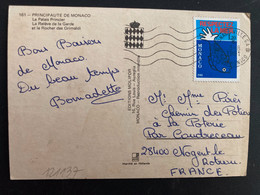 161 - PRINCIPAUTE DE MONACO
Le Palais Princier
La Relève de la Garde
et le Rocher des Grimaldi
Bons Baisers
de Monaco.
Du beau temps
Bernadette
EDITIONS MOLIPOR
MONACO
Mr Mme
Chemin des
à la
Par Coudreceau
28400 Nogent le
Rotrou
FRANCE
121137